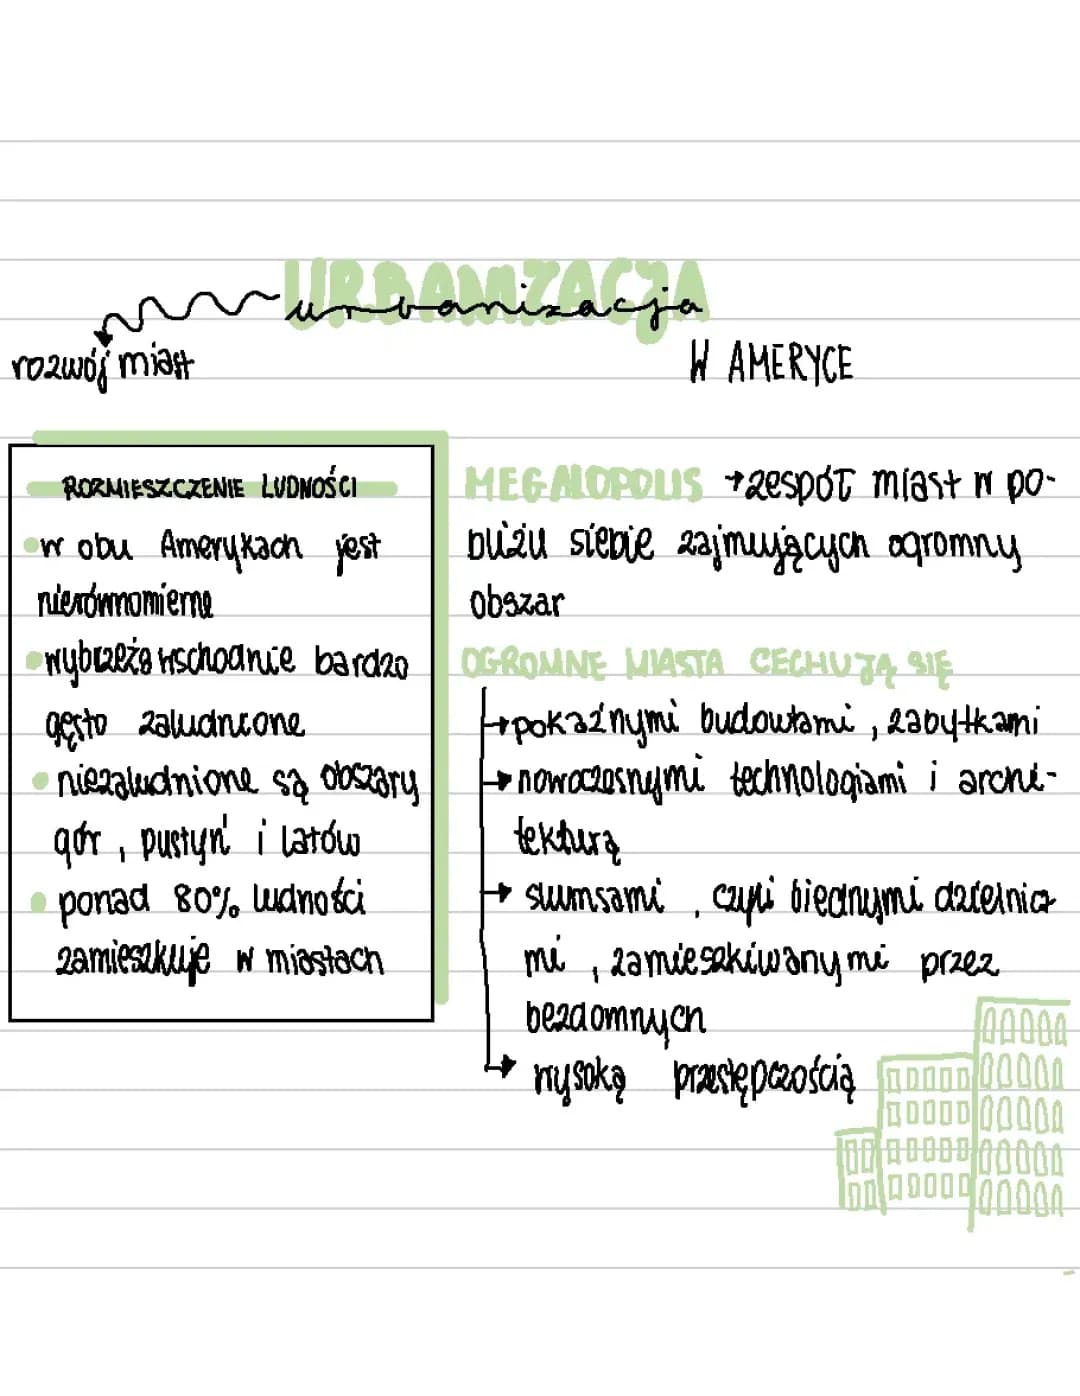 URBANIZACJA
urbanizacja
rozwój miast
W AMERYCE
ROZMIESZCZENIE LUDNOŚCI
w obu Amerykach jest
nierównomierne
wybrzeże wschodnie bardzo
gęsto zaludnione
niezaludnione są obszary
gór, pustyń i latów
ponad 80% ludności
zamieszkuje w miastach
MEGALOPOLIS → zespół miast w po-
bliżu siebie zajmujących ogromny
obszar
OGROMNE MIASTA CECHUJĄ SIĘ
→ pokaźnymi budowlami, zabytkami
→ nowoczesnymi technologiami i archi-
tekturą
→ slumsami, czyli biednymi dzielnica
mi, zamieszkiwanymi przez
bezdomnych
→ wysoką przestępczością